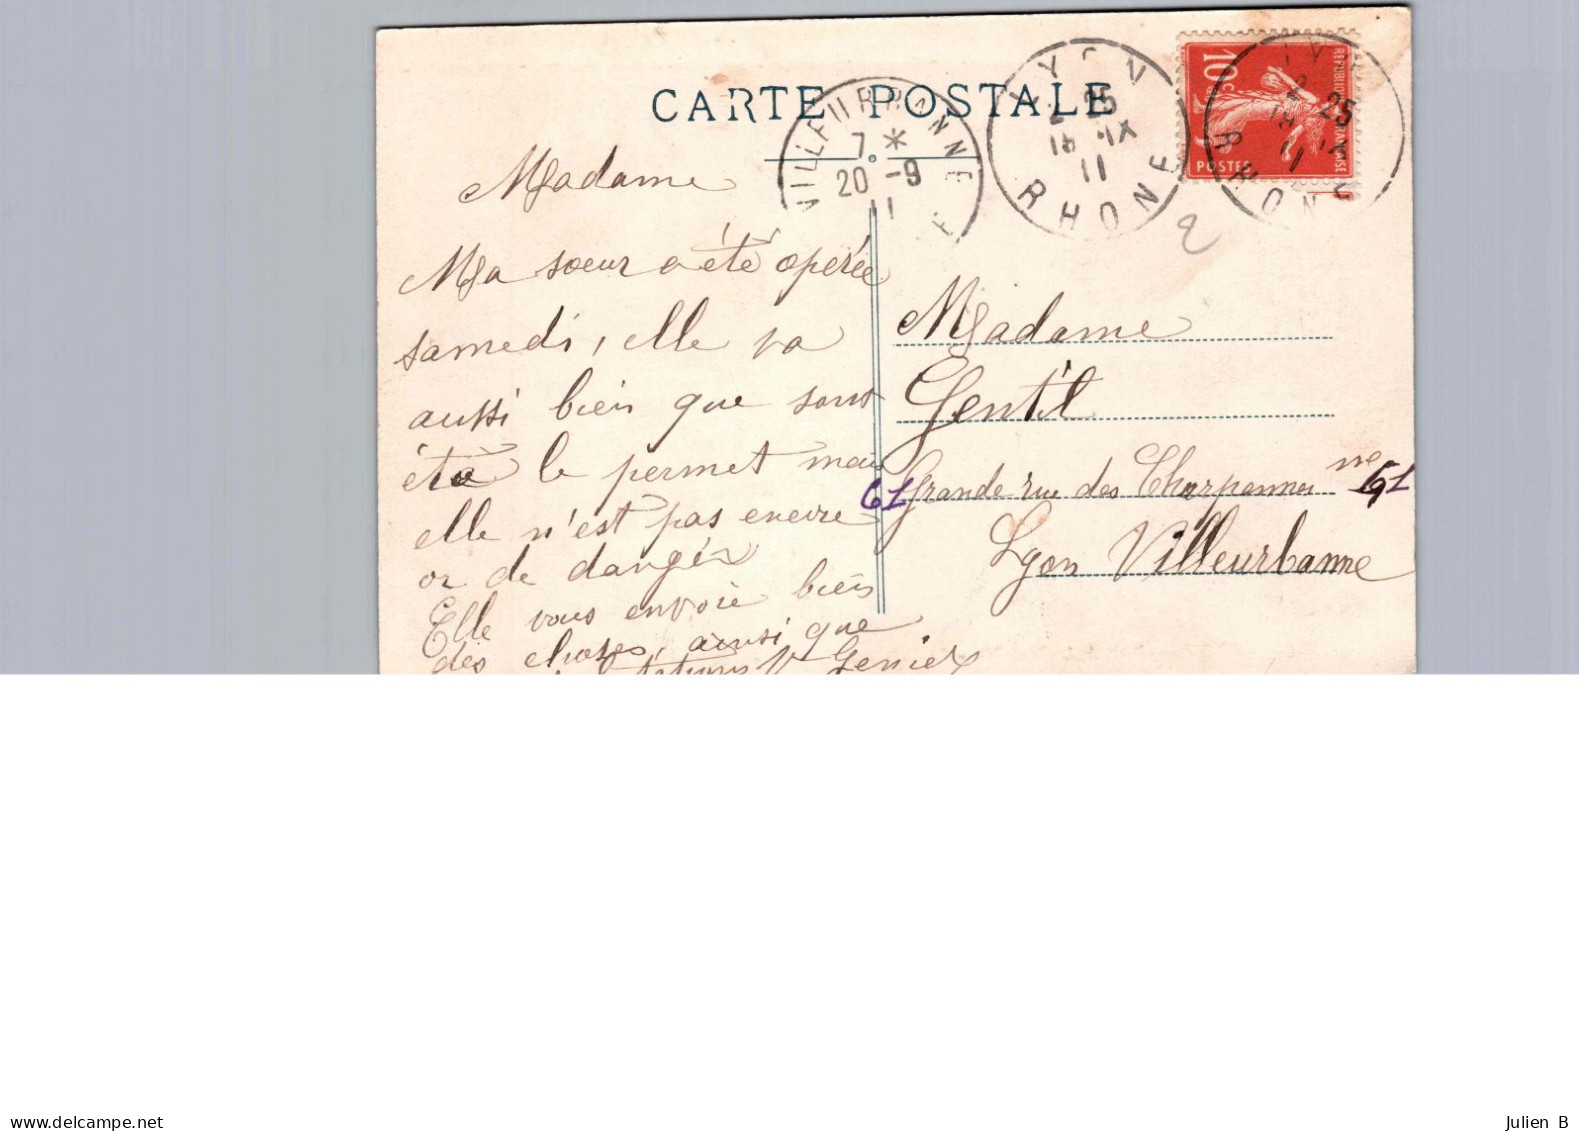 CARTE POSTALE
VILLEURBANNE
7 *
20 -9
11
LYON
2 25
18 IX
11
RHONE
RHONE
25
IX
11
10c
REPUBLIQUE FRANCAISE
POSTES
2
Madame
Ma soeur a été opérée
samedi, elle va
aussi bien que sont
état le permet mais
elle n'est pas encore
or de danger
Elle vous envoie bien
des choses, ainsi que
Genies
Madame
Gentil
61 Grande rue des Charpennes nre 61
Lyon Villeurbanne
www.delcampe.net
Julien B